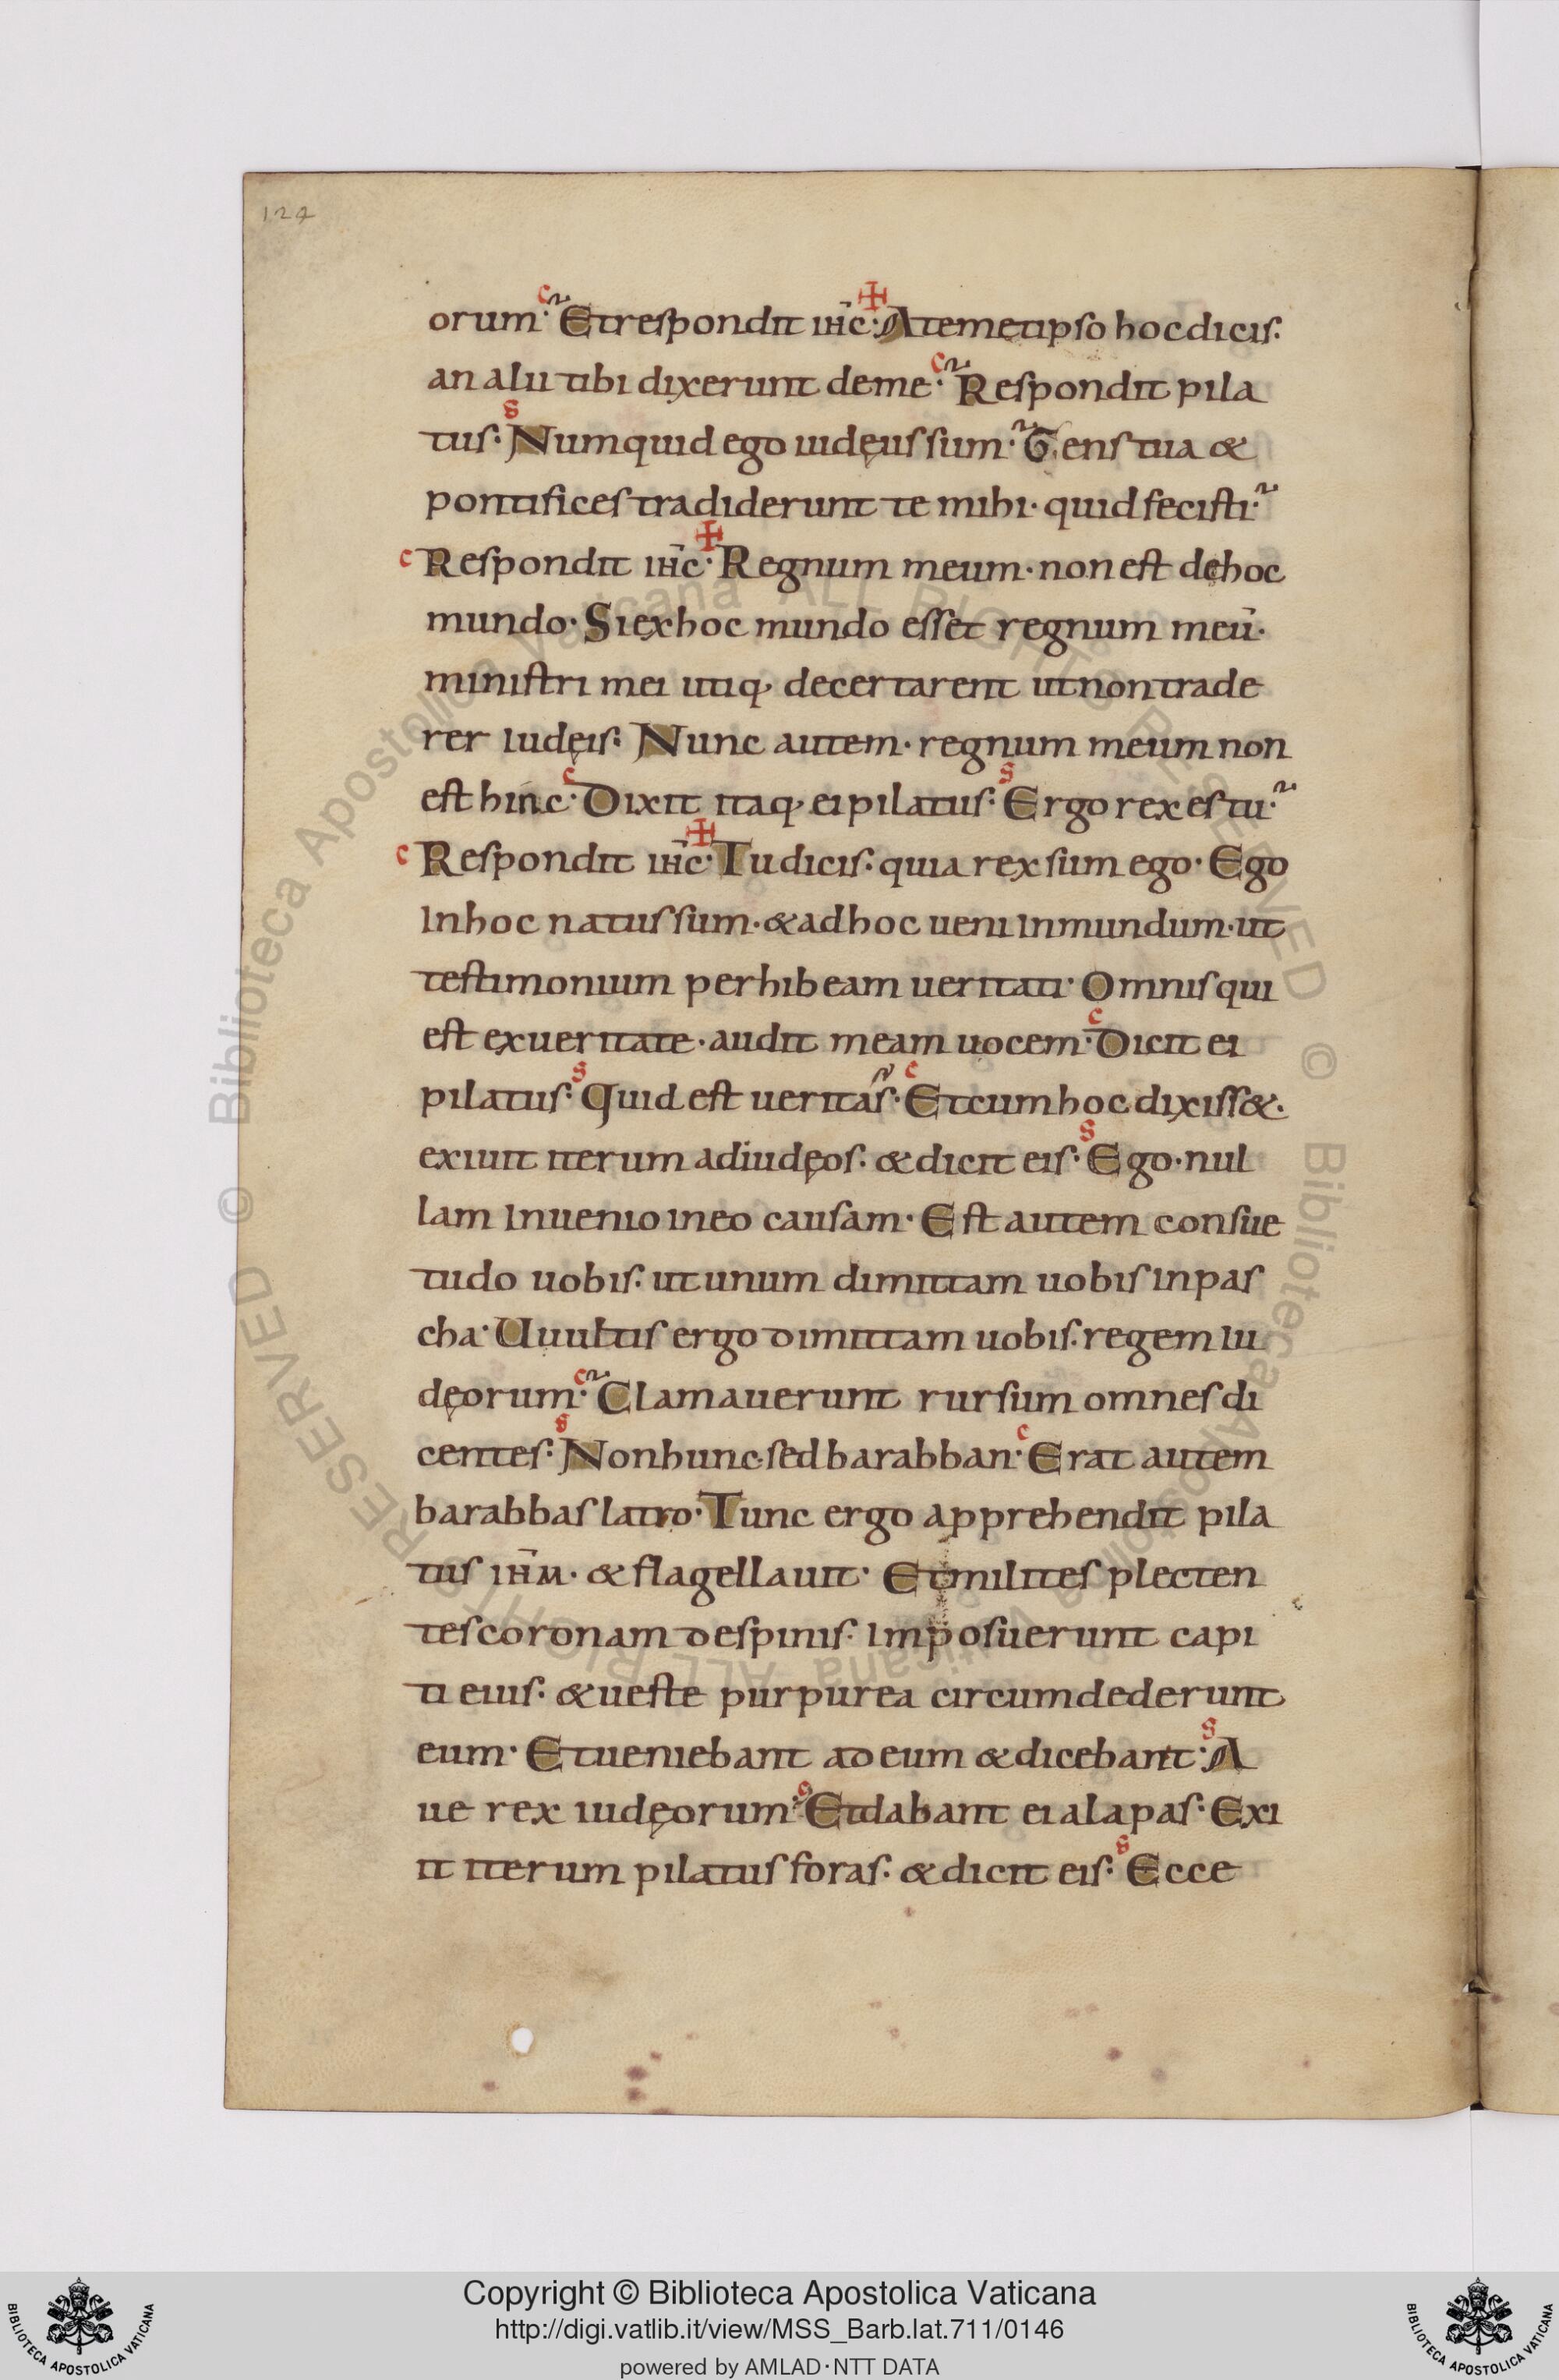 124
orum· Et respondit iħc· A temetipso hoc dicis·
an alii tibi dixerunt de me· Respondit pila
tus· Numquid ego iudęus sum· Gens tua &
pontifices tradiderunt te mihi· quid fecisti·
c Respondit iħc· Regnum meum· non est de hoc
mundo· Si ex hoc mundo esset regnum meū·
ministri mei utiq; decertarent ut non trade
rer iudęis· Nunc autem· regnum meum non
est hinc· Dixit itaq; ei pilatus· Ergo rex es tu·
c Respondit iħc· Tu dicis· quia rex sum ego· Ego
in hoc natus sum· & ad hoc ueni in mundum· ut
testimonium perhibeam ueritati· Omnis qui
est ex ueritate· audit meam uocem· Dicit ei
pilatus· Quid est ueritas· Et cum hoc dixiss&·
exiuit iterum ad iudęos· & dicit eis· Ego· nul
lam inuenio in eo causam· Est autem consue
tudo uobis· ut unum dimittam uobis in pas
cha· Uuultis ergo dimittam uobis· regem iu
dęorum· Clamauerunt rursum omnes di
centes· Non hunc· sed barabban· Erat autem
barabbas latro· Tunc ergo apprehendit pila
tus iħm· & flagellauit· Et milites plecten
tes coronam de spinis· imposuerunt capi
ti eius· & ueste purpurea circumdederunt
eum· Et ueniebant ad eum & dicebant· A
ue rex iudęorum· Et dabant ei alapas· Exi
it iterum pilatus foras· & dicit eis· Ecce
Copyright © Biblioteca Apostolica Vaticana
http://digi.vatlib.it/view/MSS_Barb.lat.711/0146
powered by AMLAD·NTT DATA
BIBLIOTECA APOSTOLICA VATICANA
BIBLIOTECA APOSTOLICA VATICANA